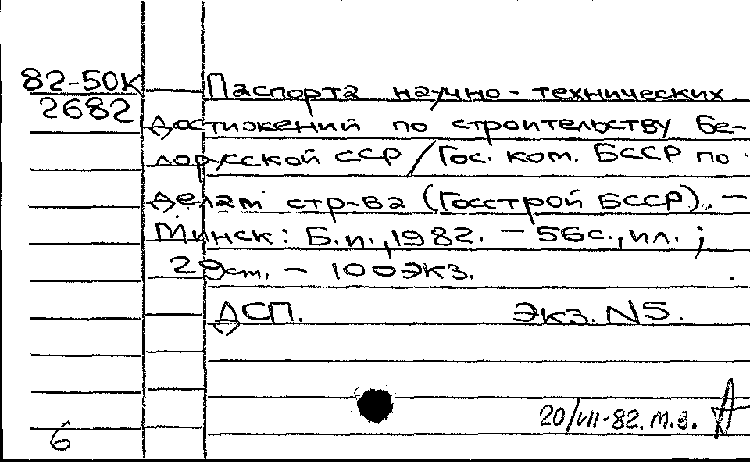 82-50К
2682
Паспорта научно-технических
достижений по строительству Бе-
лорусской ССР / Гос. ком. БССР по
делам стр-ва (Госстрой БССР). —
Минск: Б.и., 1982. — 56 с., ил. ;
29 см. — 100 экз.
ДСП. Экз. N5.
20/VII-82. м.з.
6